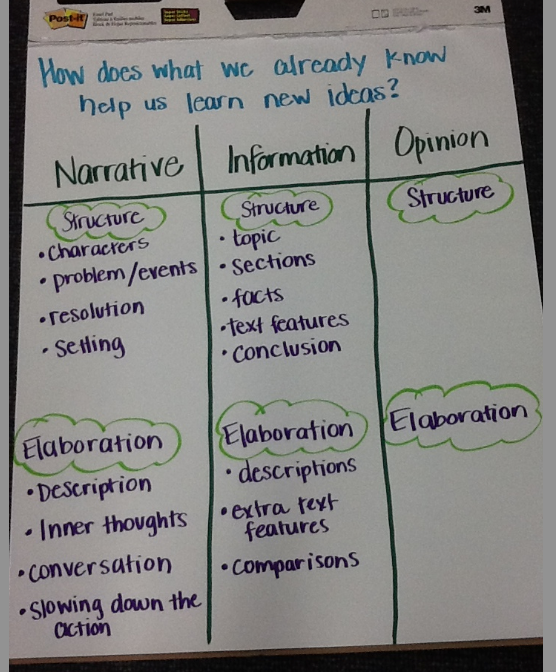 Post-it
3M
How does what we already know
help us learn new ideas?
Narrative
Information
Opinion
Structure
• characters
• problem/events
• resolution
• Setting
Structure
• topic
• sections
• facts
• text features
• conclusion
Structure
Elaboration
• Description
• Inner thoughts
• conversation
• Slowing down the
action
Elaboration
• descriptions
• extra text
features
• comparisons
Elaboration